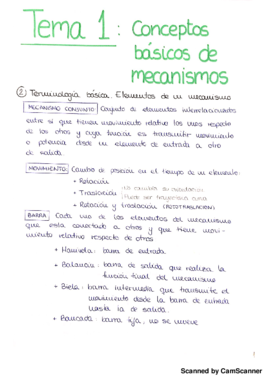 Tema 1: Conceptos
básicos de
mecanismos
② Terminología básica. Elementos de un mecanismo
MECANISMO CONJUNTO Conjunto de elementos interrelacionados
entre si que tienen movimiento relativo los unos respecto
de los otros y cuya función es transmitir movimiento
o potencia desde un elemento de entrada a otro
de salida.
MOVIMIENTO Cambio de posición en el tiempo de un elemento:
+ Rotación
+ Traslación no cambia su orientación
(Puede ser trayectoria curva)
+ Rotación y traslación (ROTOTRASLACIÓN)
BARRA Cada uno de los elementos del mecanismo
que está conectado a otros y que tiene movi-
miento relativo respecto de otros
+ Manivela: barra de entrada.
+ Balancín: barra de salida que realiza la
función final del mecanismo
+ Biela: barra intermedia que transmite el
movimiento desde la barra de entrada
hasta la de salida.
+ Bancada: barra fija, no se mueve
1
Scanned by CamScanner